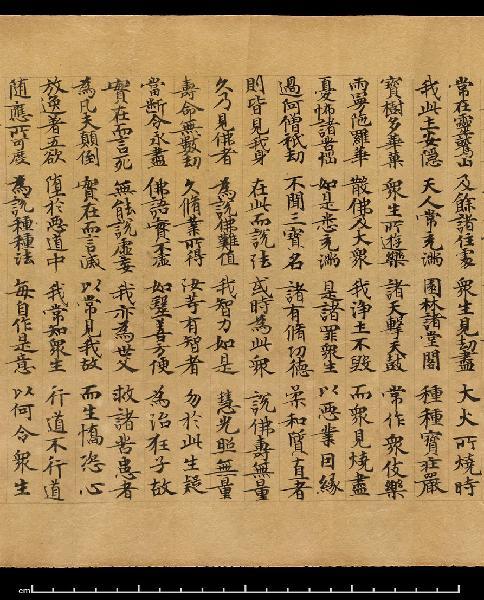 常在靈鷲山 及餘諸住處 衆生見劫盡 大火所燒時
我此土安隱 天人常充滿 園林諸堂閣 種種寶莊嚴
寶樹多華菓 衆生所遊樂 諸天擊天鼓 常作衆伎樂
雨曼陁羅華 散佛及大衆 我淨土不毀 而衆見燒盡
憂怖諸苦惱 如是悉充滿 是諸罪衆生 以惡業因緣
過阿僧祇劫 不聞三寶名 諸有脩功德 柔和質直者
則皆見我身 在此而說法 或時為此衆 說佛壽無量
久乃見佛者 為說佛難值 我智力如是 慧光照無量
壽命無數劫 久脩業所得 汝等有智者 勿於此生疑
當斷令永盡 佛語實不虛 如醫善方便 為治狂子故
實在而言死 無能說虛妄 我亦為世父 救諸苦患者
為凡夫顛倒 實在而言滅 以常見我故 而生憍恣心
放逸著五欲 墮於惡道中 我常知衆生 行道不行道
隨應所可度 為說種種法 每自作是意 以何令衆生
cm